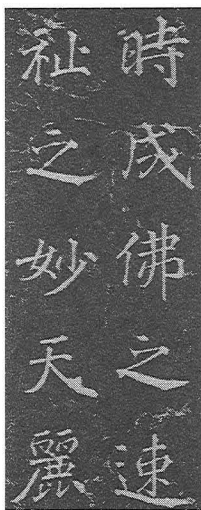 時成佛之速
祉之妙天麗